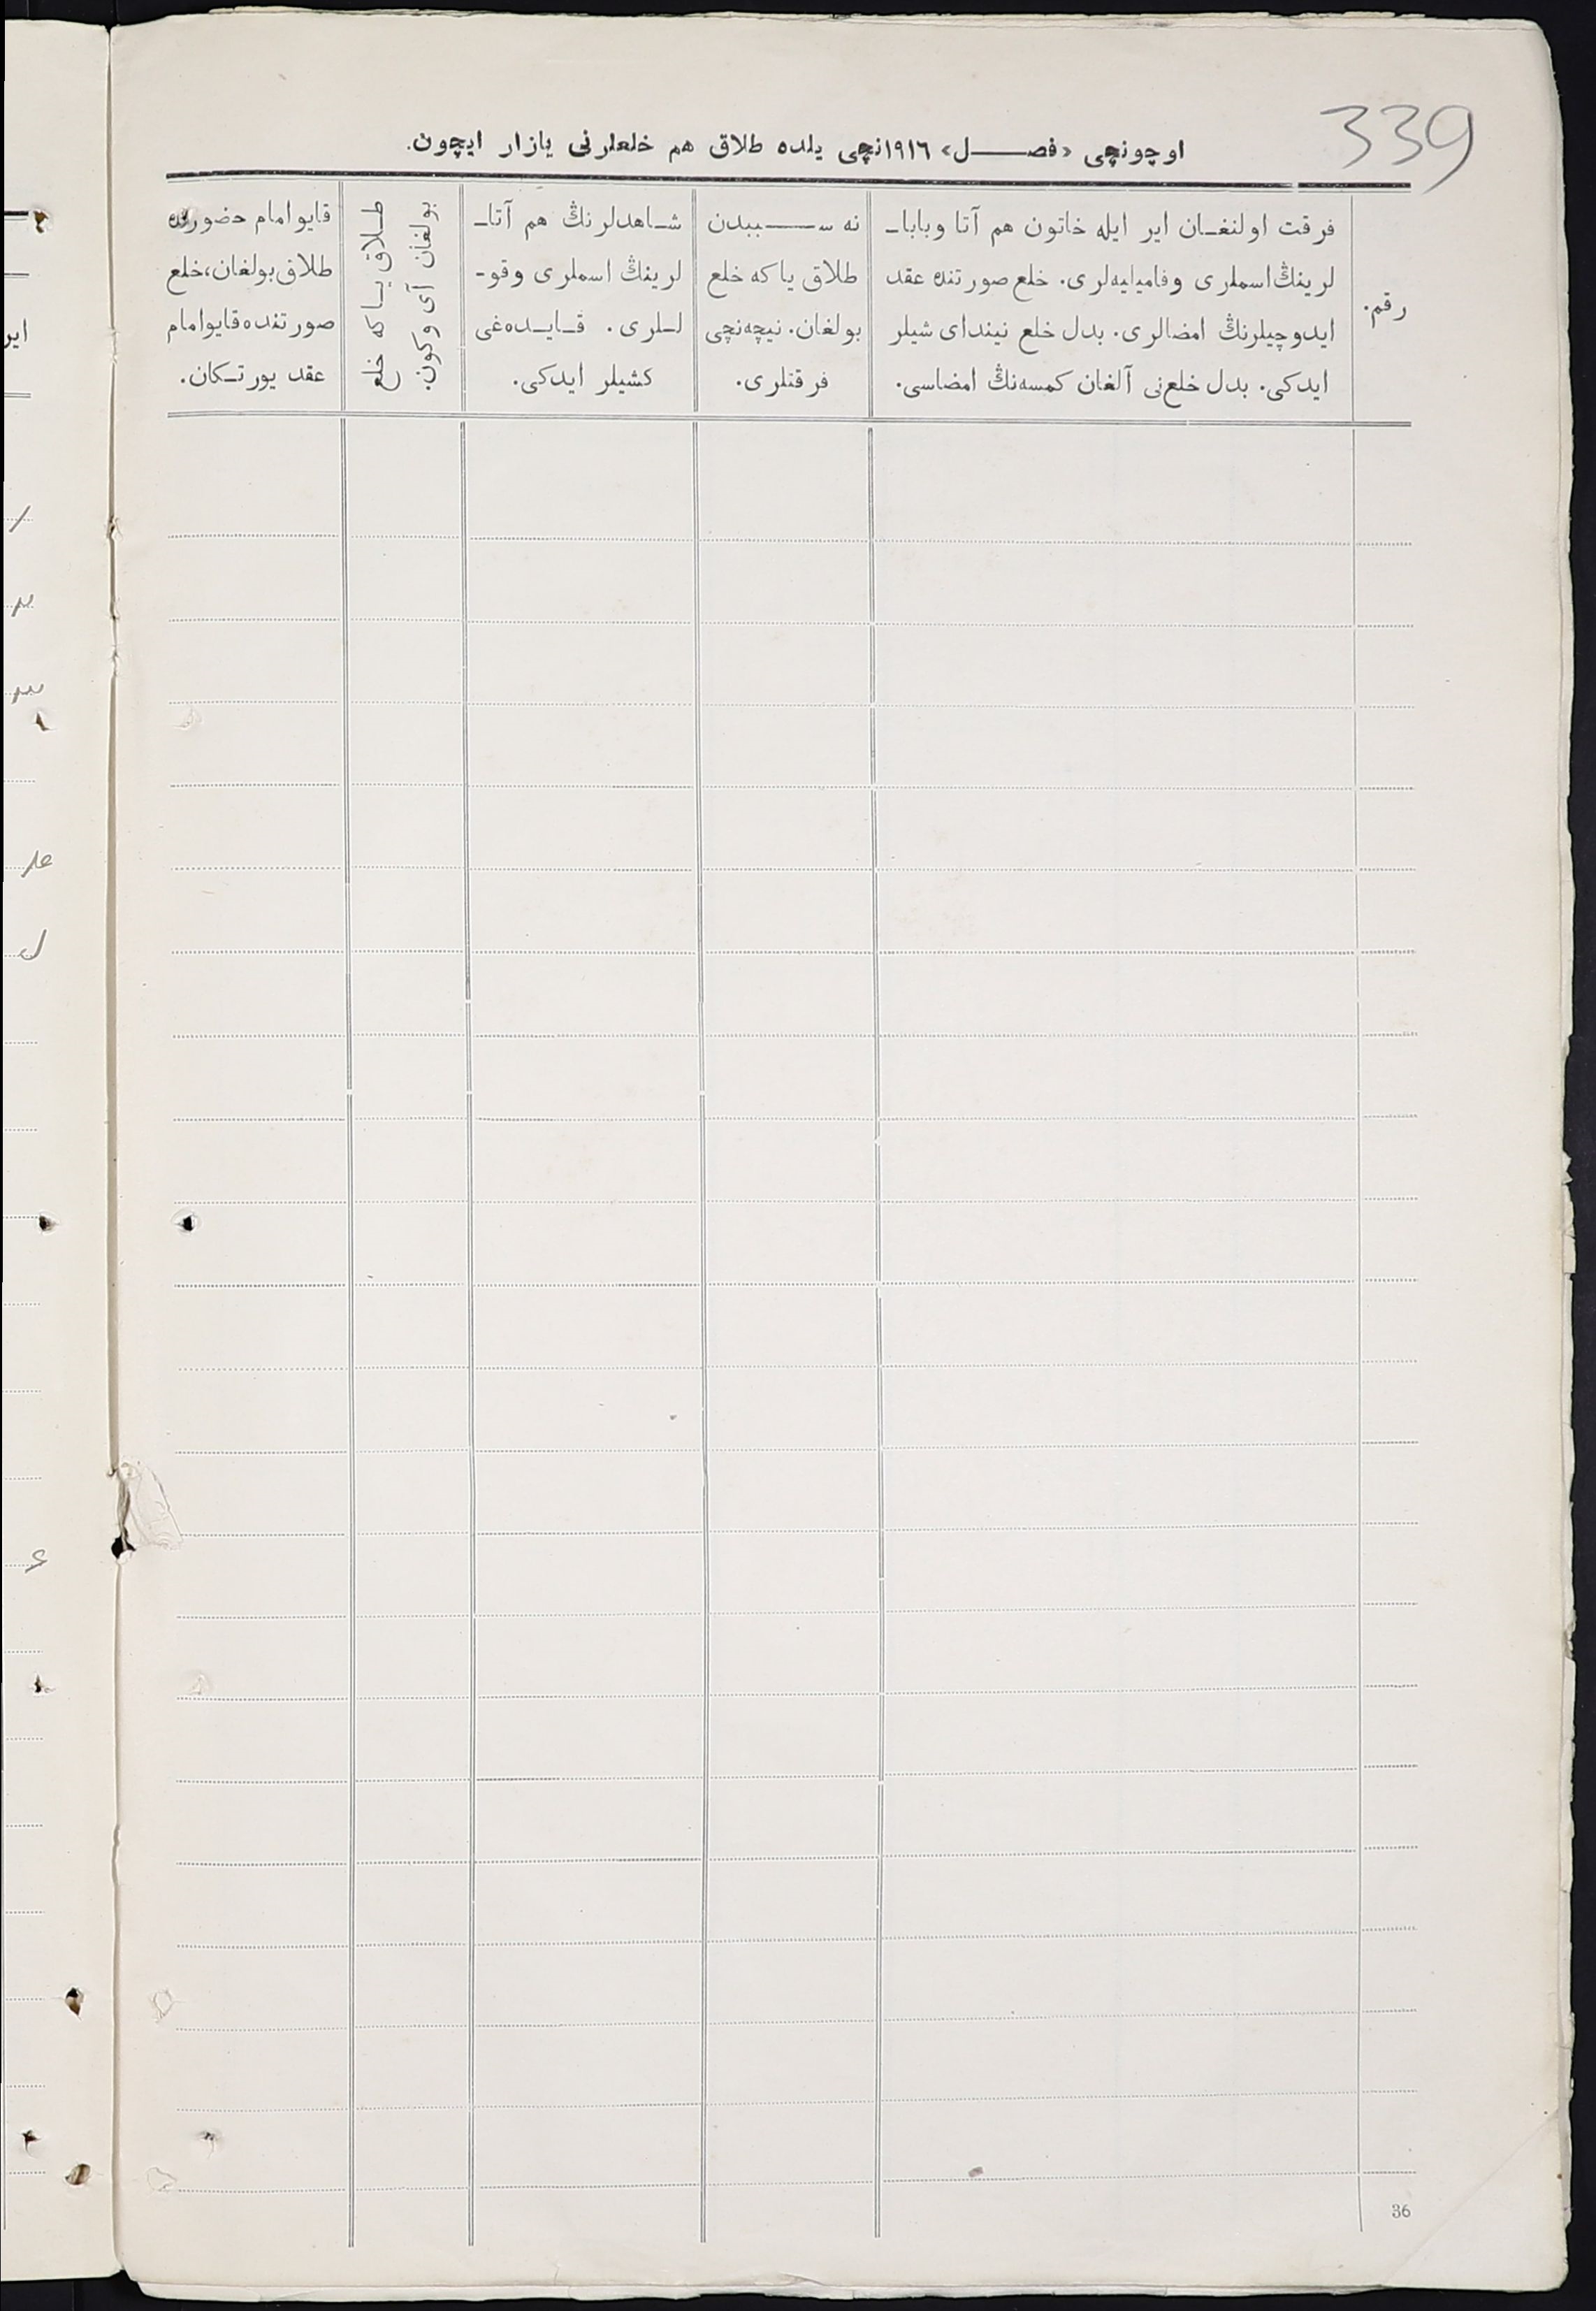 339
اوچونچی «فصل» ١٩١٦نچی یلده طلاق هم خلعلرنی یازار ایچون.
رقم.
فرقت اولنغان ایر ایله خاتون هم آتا وبابا-
لرینڭ اسملری وفامیلیه‌لری. خلع صورتنده عقد
ایدوچیلرنڭ امضالری. بدل خلع نیندای شیلر
ایدکی. بدل خلع‌نی آلغان کمسه‌نڭ امضاسی.
نه سببدن
طلاق یا که خلع
بولغان. نیچه‌نچی
فرقتلری.
شاهدلرنڭ هم آتا-
لرینڭ اسملری وقو-
لـلری. قایده‌غی
کشیلر ایدکی.
طلاق یا که خلع
بولغان آی وکون.
قایو امام حضورنده
طلاق بولغان، خلع
صورتنده قایو امام
عقد یورتکان.
ایر
36